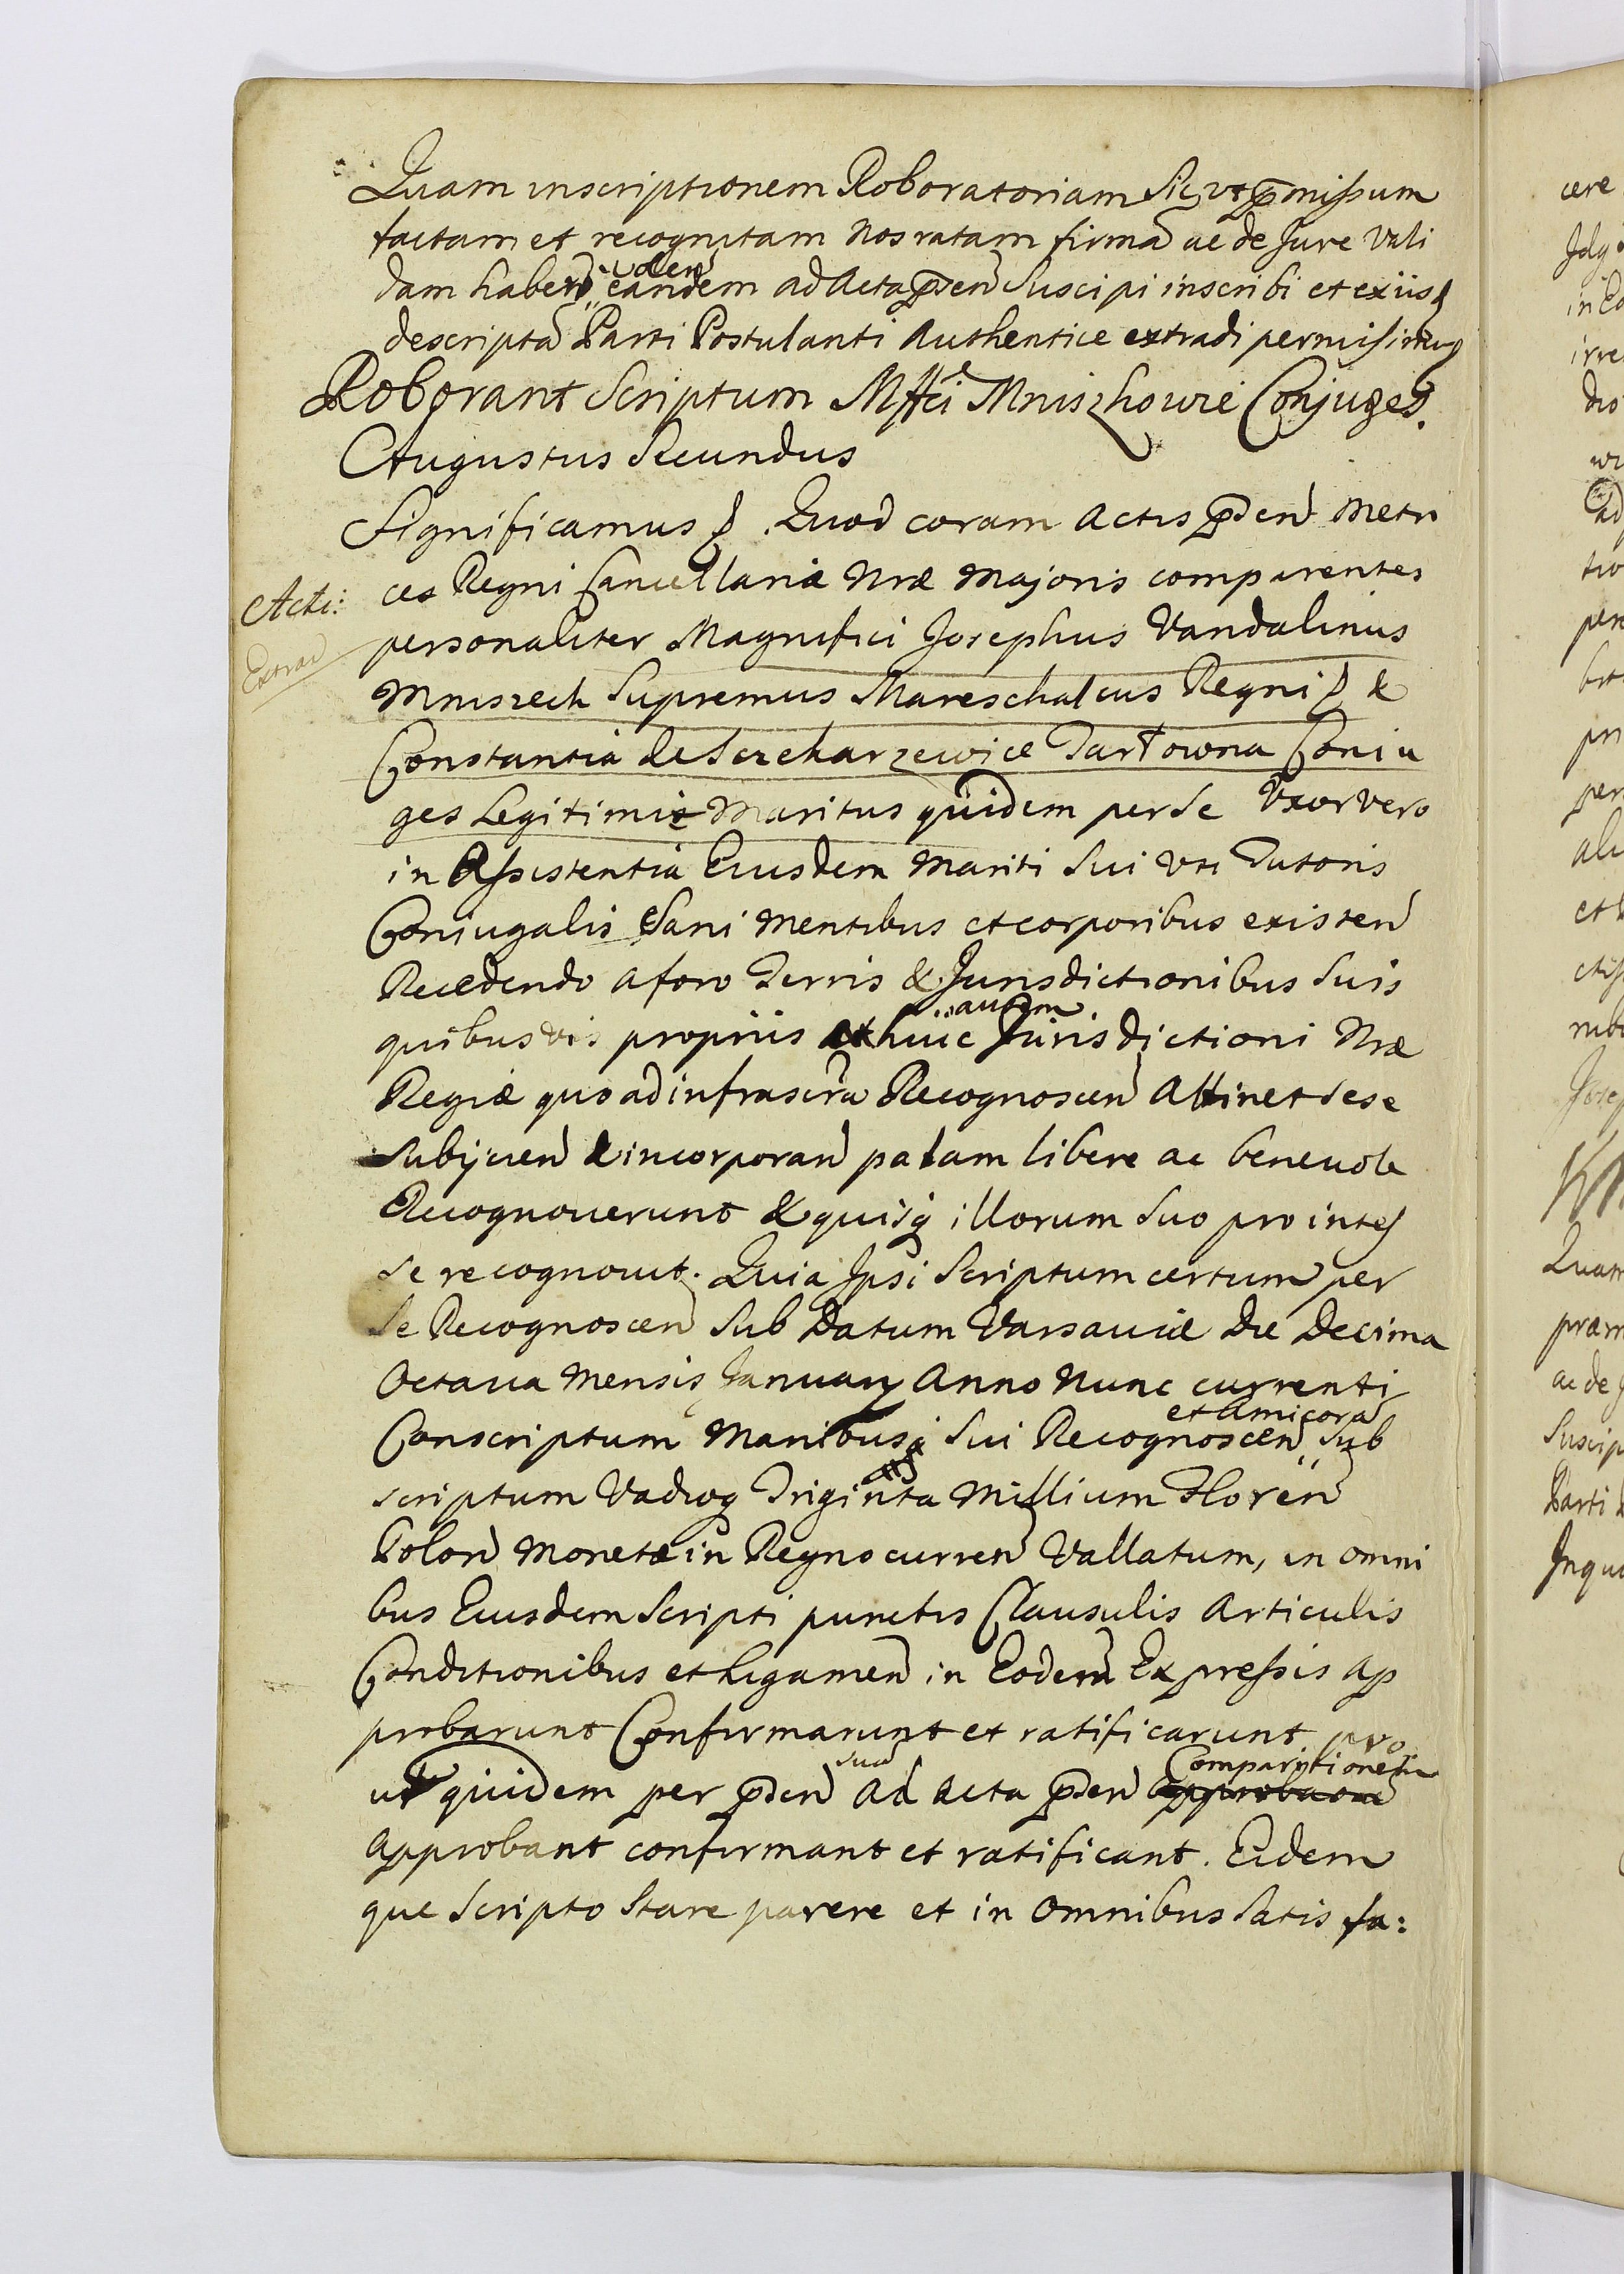 Quam inscriptionem Roboratoriam Sic ut p̄missum
factam et recognitam Nos ratam firmā ac de Jure Vali
dam haberi eandem ad Acta p̄sen Suscipi inscribi et ex iisd
descriptā Parti Postulanti Authentice extradi permisimus
Roborant Scriptum Mffci Mniszhowie Conjuges.
Augustus Secundus
Significamus Quod coram Actis p̄sen Metri
ces Regni Cancellariæ Nræ Majoris comparentes
Acti:
Extrad
personaliter Magnifici Josephus Vandalinus
Mniszech Supremus Mareschalcus Regni &
Constantia de Szczekarzewice Tarłowna Coniu
ges Legitimi Maritus quidem per Se Uxor vero
in Assistentia Eiusdem Mariti Sui Uti Tutoris
Coniugalis Sani Mentibus et corporibus existen
Recedendo a foro Terris & Jurisdictionibus Suis
quibusvis propriis
autem
huic Jurisdictioni Nræ
Regiæ quo ad infrascra Recognoscen Attinet Sese
Subijcien & incorporan palam libere ac beneuole
Recognouerunt & quisq illorum Suo pro intes
se recognouit. Quia Ipsi Scriptum certum per
Se Recognoscen Sub Datum Varsauiæ Die Decima
Octaua Mensis January Anno Nunc currenti
et Amicorū
Conscriptum Manibusq Sui Recognoscen Sub
scriptum Vadioq Triginta Millium Floren
Polon Monetæ in Regno curren Vallatum, in omni
bus Eiusdem Scripti punctis Clausulis Articulis
Conditionibus et Ligamen in Eodem Expressis ap
probarunt Confirmarunt et ratificarunt pro
sua
Comparitionem
ut quidem per p̄sen ad Acta p̄sen
Approbant confirmant et ratificant. Eidem
que Scripto Stare parere et in Omnibus Satis fa: